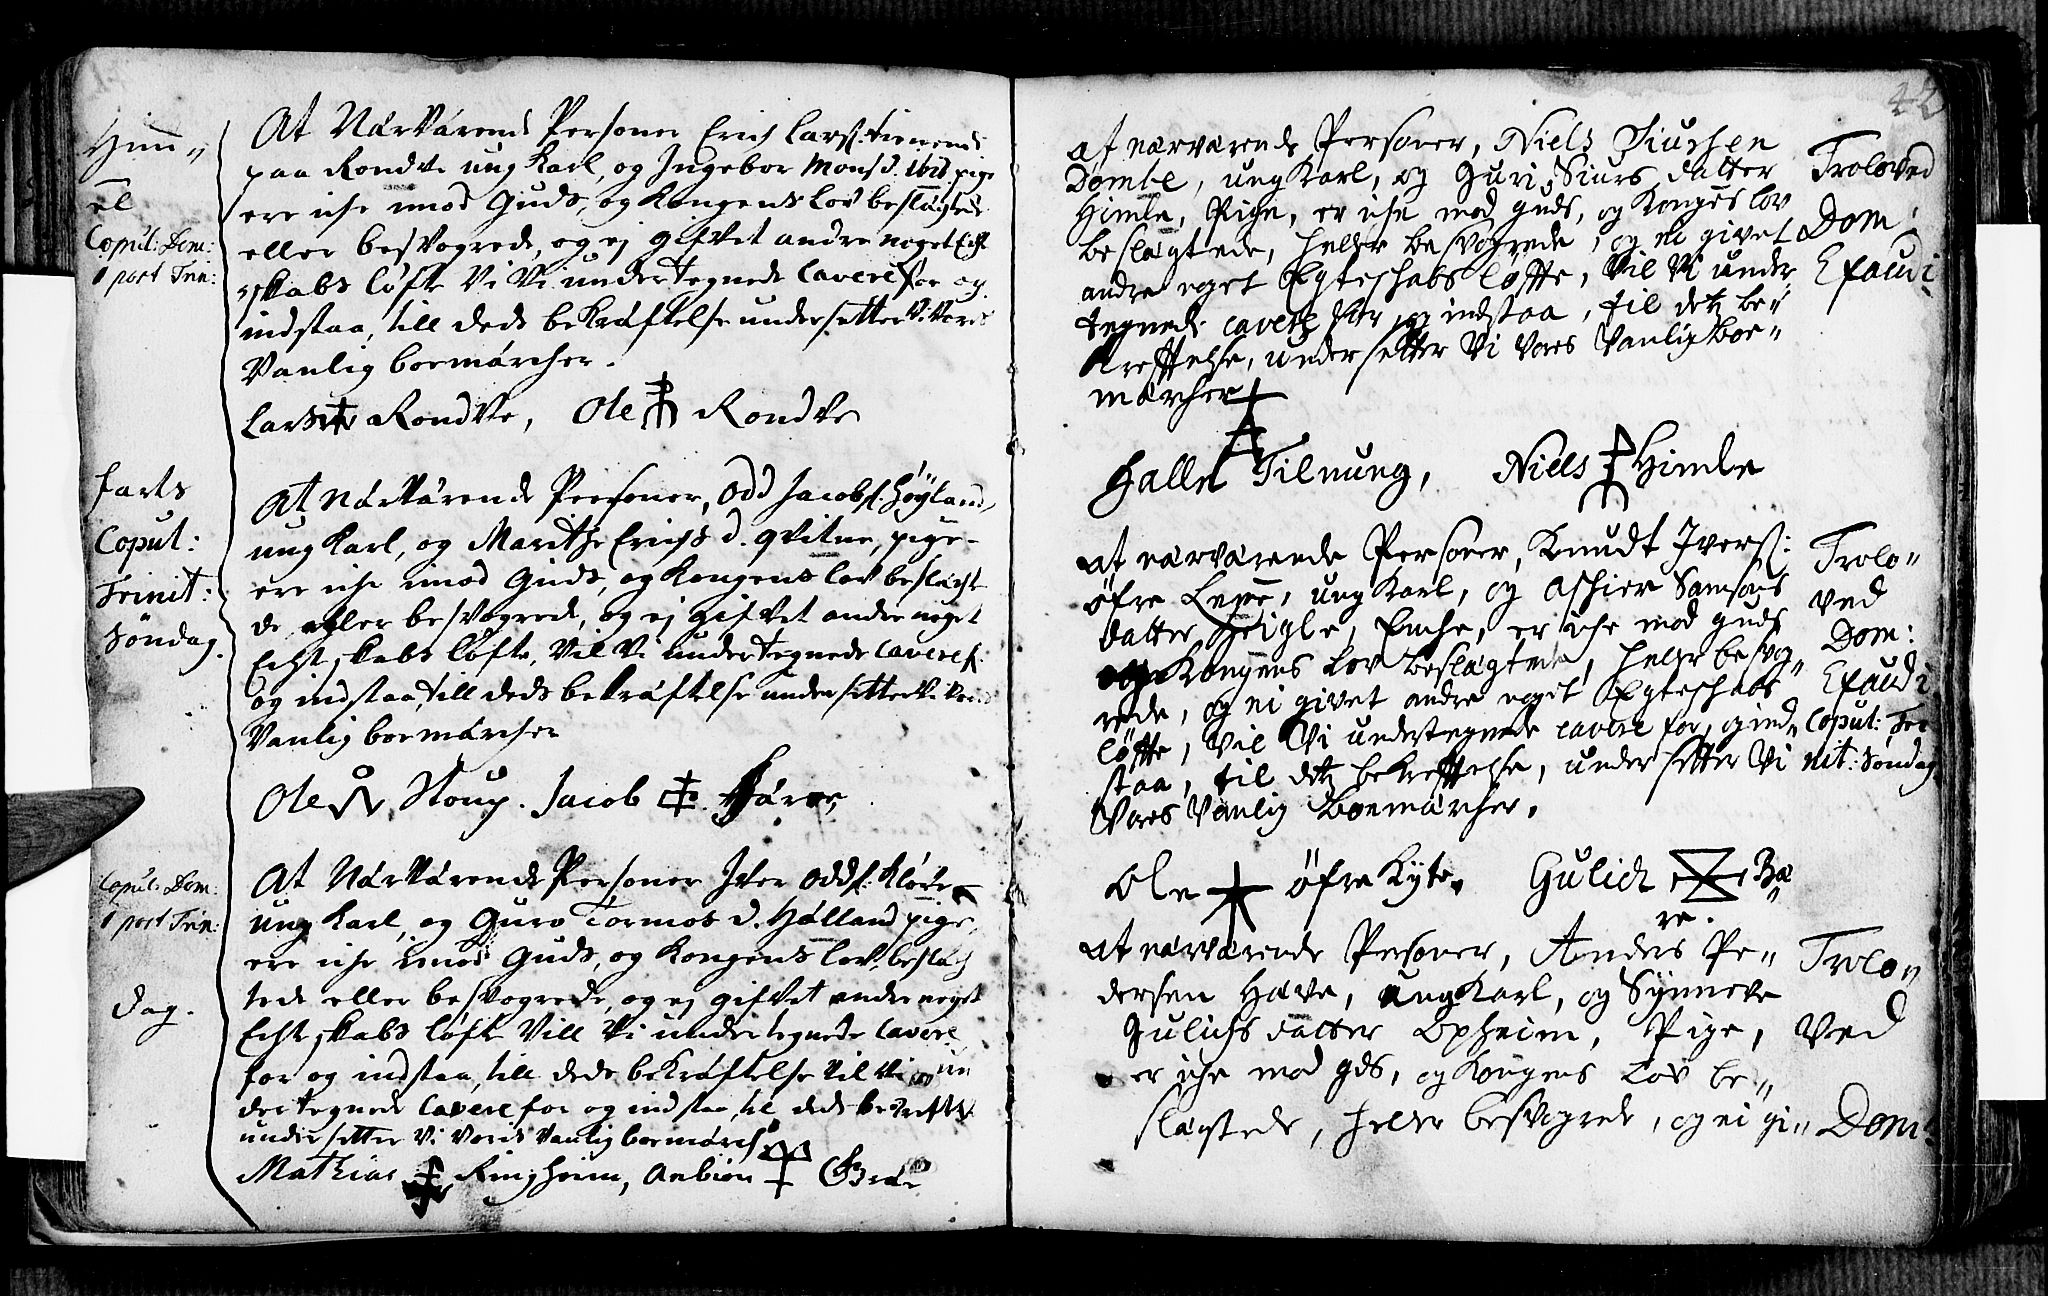 Him„
el
Copul: Dom:
1 post Trin:
At Nærværende Personer Erich Larss. tienende
paa Rondve ung Karl, og Ingebor Monsd. ibid pige
ere iche imod Guds, og Kongens lov beslægtede
eller besvogrede, og ej gifvet andre noget Echt
skabs løfte Vi Vi undertegnede Cavere for og
indstaa, till deds bekræftelse undersetter Vi Vores
Vanlig boemærcher.
Lars Rondve, Ole Rondve
Copul:
Trinit:
Søndag.
At Nærværende Personer, Odd Jacobs. Høyland,
ung Karl, og Marithe Erichs d. qvitne, pige
ere iche imod Guds, og Kongens lov beslächt
de eller besvogrede, og ej gifvet andre noget
Echt skabs løfte, Vil Vi undertegnede Cavere f.
og indstaa, till deds bekræftelse undersetter Vi Voris
Vanlig boemærcher
Ole Stoup. Jacob
Copul: Dom:
1 post Trin:
Dag.
At Nærværende Personer Iver Odds.
ung Karl, og Guro Tormos d. Hælland pige,
ere iche imod Guds, og Kongens lov, beslæch
tede eller besvogrede, og ej gifvet andre noget
Echt skabs løfte Vill Vi undertegnede Cavere
for og indstaa, till deds bekræftelse Vil Vi un
dertegnede Cavere for og indstaa, til deds
undersetter Vi Voris Vanlig boemærch
Mathias Ringheim, Anbiøn
22
At nærværende Personer, Niels Siurhen
Dombe, ung Karl, og Guri Siurs datter
Himle, Pige, er iche mod guds, og Konges lov
beslægtede, heller besvogrede, og ei givet
andre eget Egteschabs løffte, Vil Vi under
tegnede cavere for og indstaa, til detz be„
kreffthelse, undersetter Vi Vores Vanlig boe„
mærcher
Troloved
Dom:
Exaudi
Halle Tilnung, Niels Himle
At nærværende Personer, Knudt Ivers:
øfre Lene, ung Karl, og Aschier Samsons
datter Heigle, Enche, er iche mod guds
og Kongens Lov beslægtede, heller besvog„
rede, og ei givet andre eget Egteschabs
løffte, Vil Vi undertegnede cavere for, og ind„
staa, til detz bekreffthelse, undersetter Vi
Vores Vanlig Boemærcher.
Trolo„
ved
Dom:
Exaudi
Copul: Tri
nit: Søndag.
Ole øfre Kyte. Gulich Bæ„
re.
At nærværende Personer, Anders Pe„
dersen Hæve, ung Karl, og Synneve
Gulichs datter Opheim, Pige,
er iche mod gds, og Kongens Lov be„
slægtede, heller besvogrede, og ei gi„
Trolo„
ved
Dom: